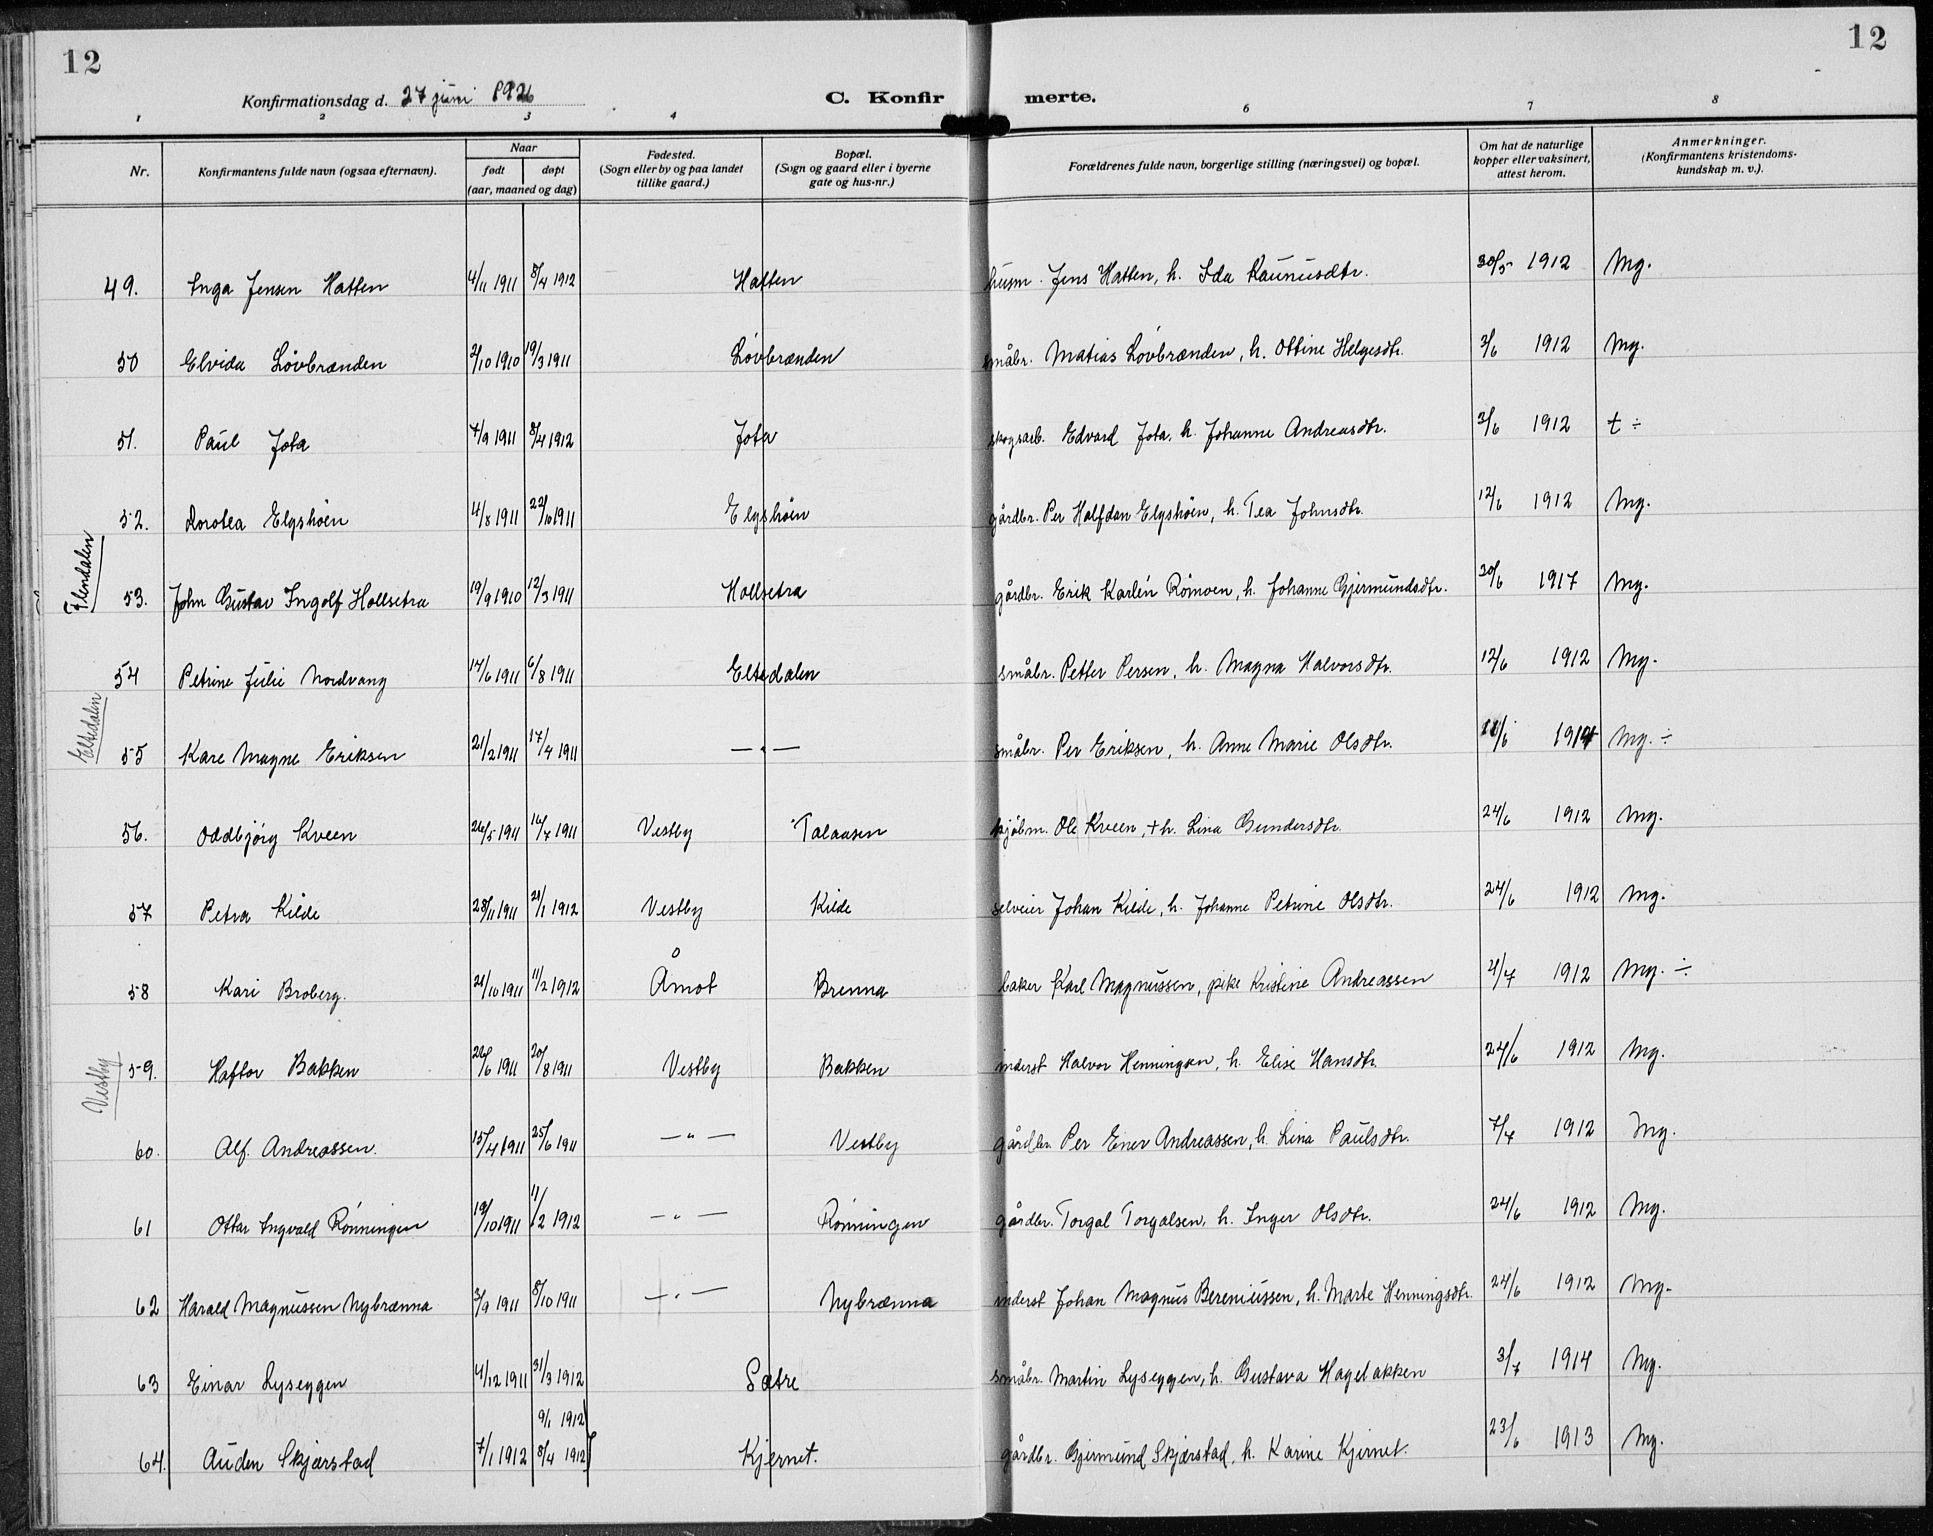 12
12
Konfirmationsdag d. 27 juni 1926
C. Konfir merte.
1 2 3 4 6 7 8
Nr.
Konfirmantens fulde navn (ogsaa efternavn).
Naar
født døpt
(aar, maaned og dag)
Fødested.
(Sogn eller by og paa landet
tillike gaard.)
Bopæl.
(Sogn og gaard eller i byerne
gate og hus-nr.)
Forældrenes fulde navn, borgerlige stilling (næringsvei) og bopæl.
Om hat de naturlige
kopper eller vaksinert,
attest herom.
Anmerkninger.
(Konfirmantens kristendoms-
kundskap m. v.).
49. Inga Jensen Hatten 4/11 1911 8/4 1912 Hatten husm. Jens Hatten, h. Ida 30/5 1912 Mg.
50 Elvida Lövbrænden 2/10 1910 19/3 1911 Lövbrænden småbr. Matias Lövbrænden, h. Ottine Helgesdtr. 3/6 1912 Mg.
51. Paul Jota 7/9 1911 8/4 1912 Jota skogsarb. Edvard Jota, h. Johanne Andreasdtr. 3/6 1912 t ÷
52. Dorotea Elgshöen 4/8 1911 22/10 1911 Elgshöen gårdbr. Per Halfdan Elgshöen, h. Tea Johnsdtr. 12/6 1912 Mg.
Flendalen
53. John Gustav Ingolf Hollsetra 19/9 1910 12/3 1911 Hollsetra gårdbr. Erik Karlén Römoen, h. Johanne Gjermundsdtr. 20/6 1917 Mg.
54 Petrine Julie Nordvang 14/6 1911 6/8 1911 Eltedalen småbr. Petter Persen, h. Magna Halvorsdtr. 12/6 1912 Mg.
Eltedalen
55 Kare Magne Eriksen 21/2 1911 17/4 1911 — " — småbr. Per Eriksen, h. Anne Marie Olsdtr. 11/6 1914 Mg. ÷
56. Oddbjörg Kveen 26/5 1911 16/7 1911 Vestby Talaasen kjöbm. Ole Kveen, + h. Lina Gundersdtr. 24/6 1912 Mg.
57 Petra Kilde 28/11 1911 21/1 1912 Vestby Kilde selveier Johan Kilde, h. Johanne Petrine Olsdtr. 24/6 1912 Mg.
58 Kari Broberg. 21/10 1911 11/2 1912 Åmot Brenna baker Karl Magnussen, pike Kristine Andreassen 4/7 1912 Mg. ÷
Vestby
59. Haftor Bakken 26/6 1911 20/8 1911 Vestby Bakken inderst Halvor Henningsen, h. Elise Hansdtr. 24/6 1912 Mg.
60. Alf. Andreassen. 15/4 1911 25/6 1911 — " — Vestby gårdbr. Per Ener Andreassen, h. Lina Paulsdtr. 7/7 1912 Mg.
61 Ottar Ingvald Rönningen 19/10 1911 11/2 1912 — " — Rönningen gårdbr. Torgal Torgalsen, h. Inger Olsdtr. 24/6 1912 Mg.
62 Harald Magnussen Nybrænna 3/9 1911 8/10 1911 — " — Nybrænna inderst Johan Magnus Bereniussen, h. Marte Henningsdtr. 24/6 1912 Mg.
63 Einar Lyseggen 4/12 1911 31/3 1912 Sætre småbr. Martin Lyseggen, h. Gustava Hagelakken 3/7 1914 Mg.
9/1 1912
64. Auden Skjærstad 7/1 1912 8/4 1912 Kjernet. gårdbr. Gjermund Skjærstad, h. Karine Kjernet. 23/6 1913 Mg.